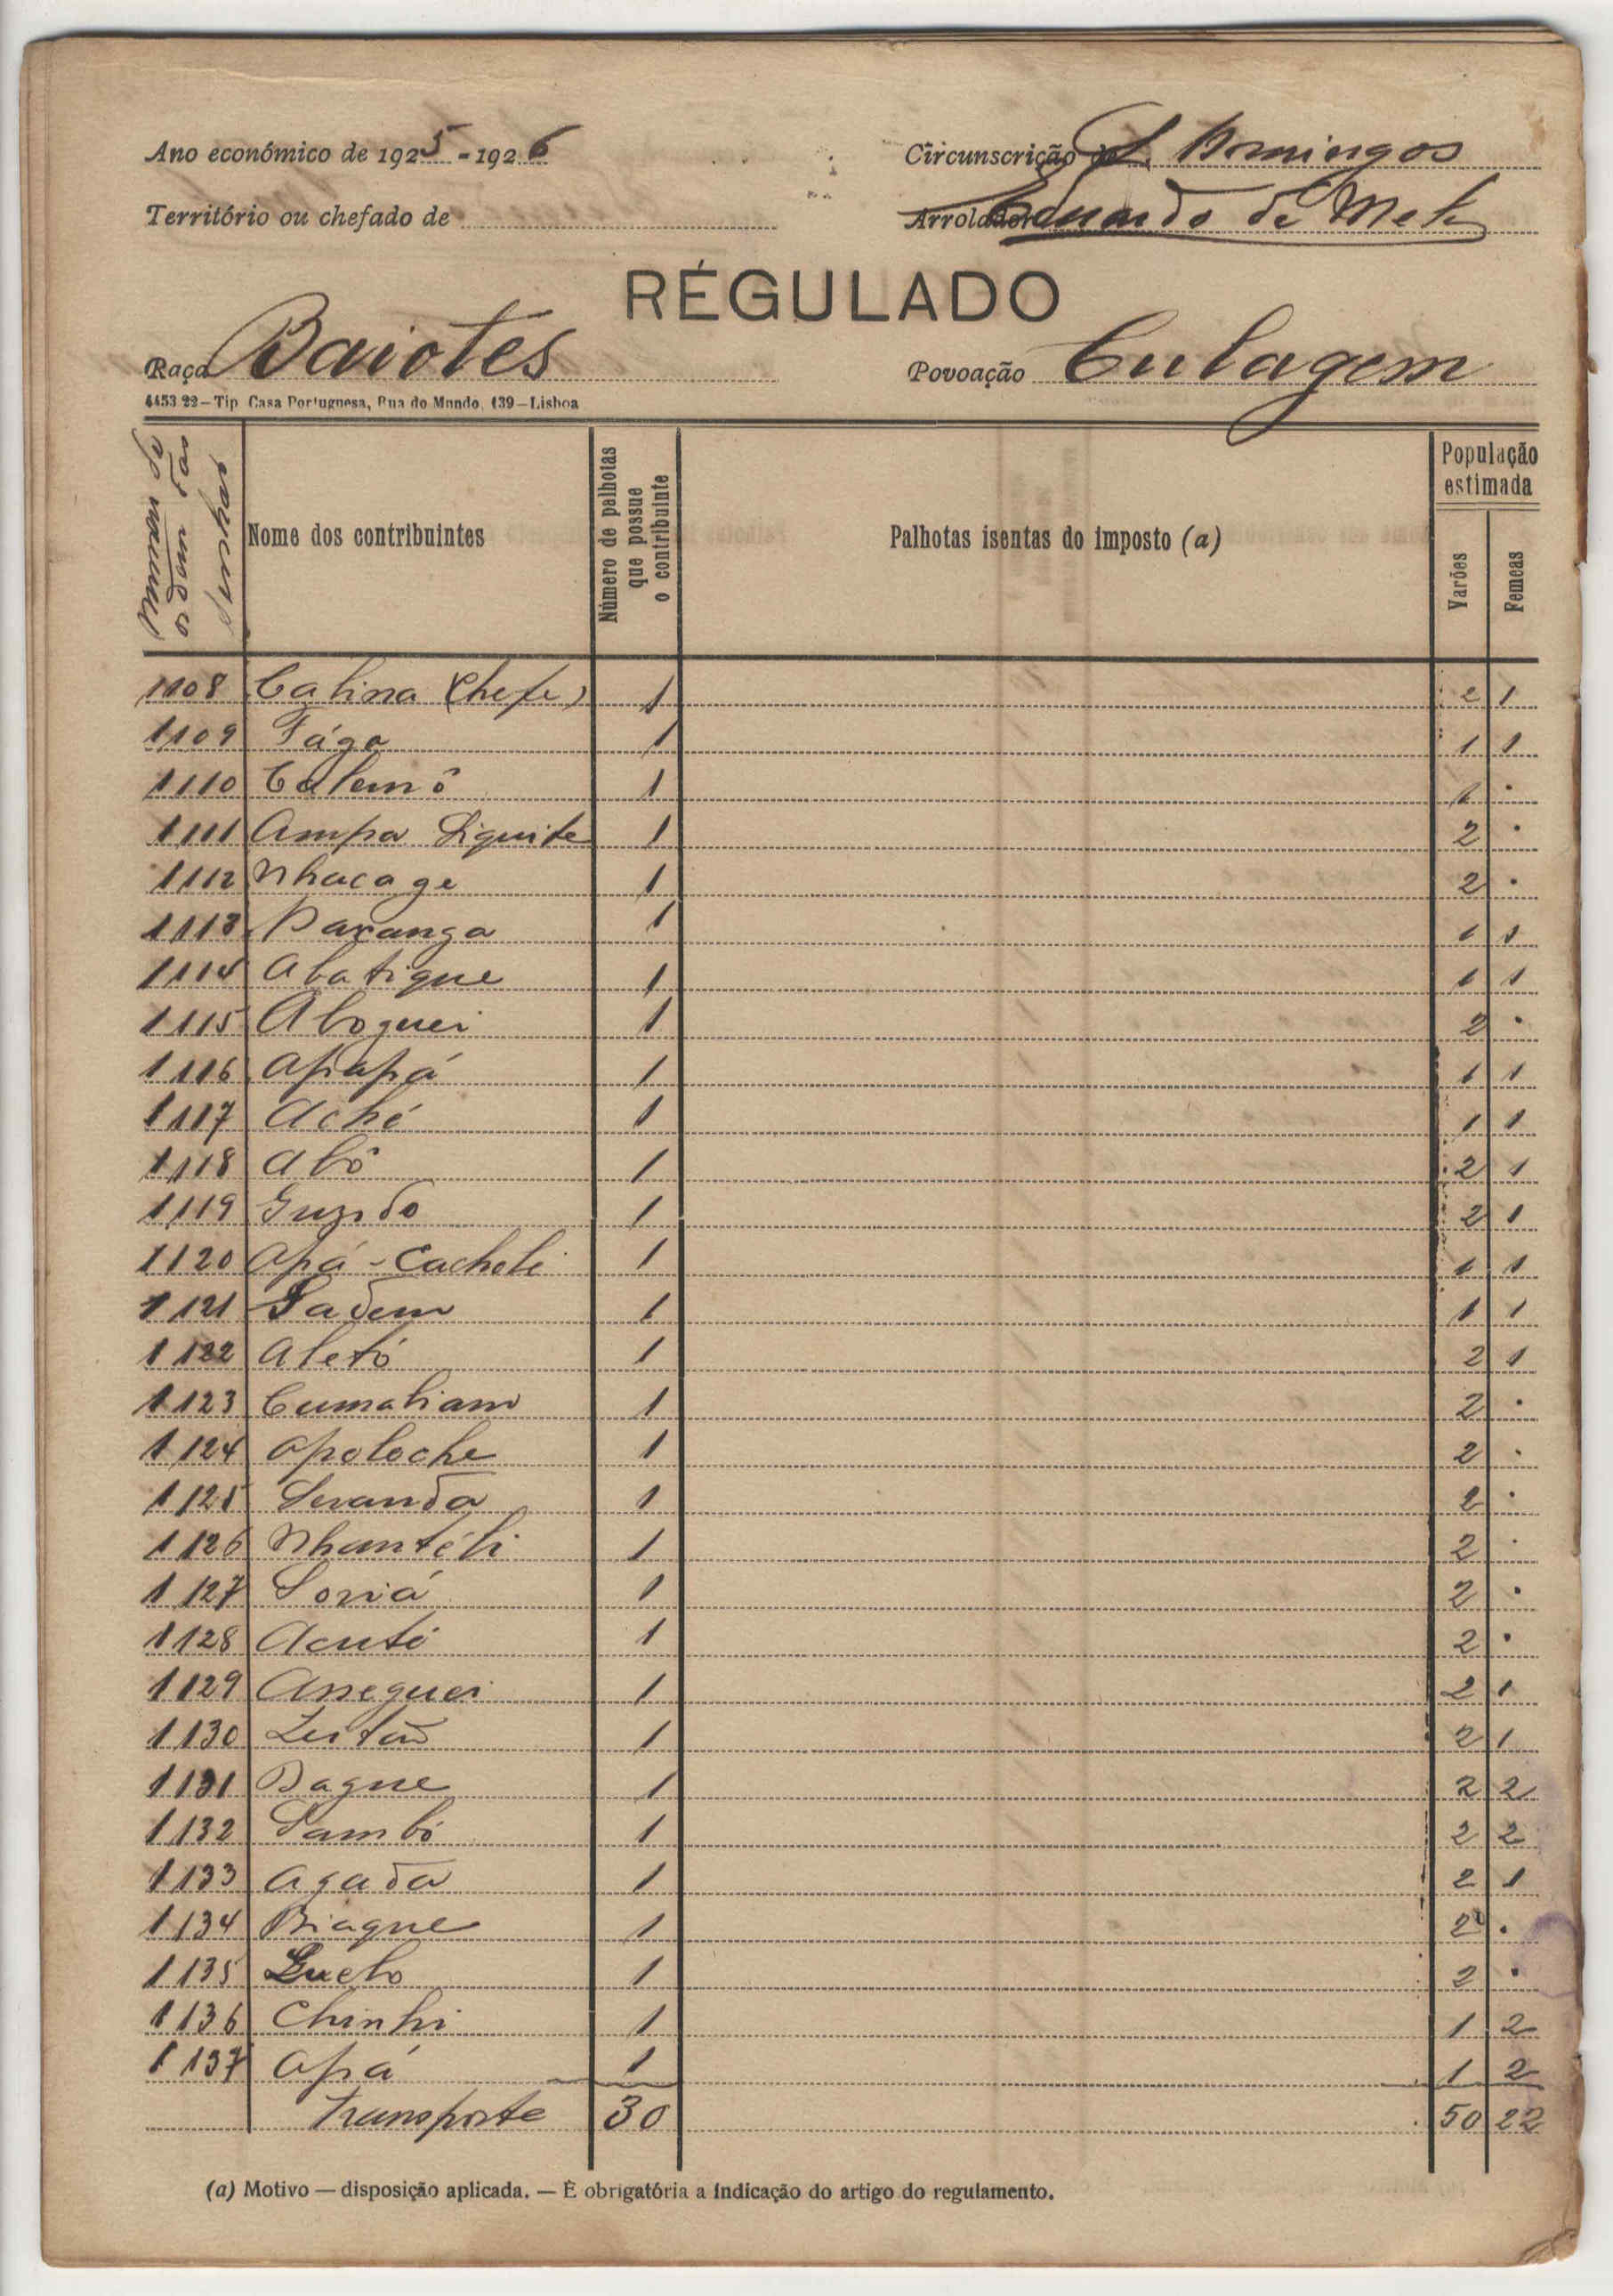 Ano económico de 1925-1926
Circunscrição de S. Domingos
Território ou chefado de
Arrolador Eduardo de
RÉGULADO
Raça Baiotes
Povoação Culagem
4453 22—Tip Casa Portuguesa, Rua do Mundo, 139—Lisboa
Numero de ordem das senhas
Nome dos contribuintes
Número de palhotas que possue o contribuinte
Palhotas isentas do imposto (a)
População estimada
Varões
Femeas
1108 Calina (Chefe) 1 2 1
1109 Fága 1 1 1
1110 Calemô 1 1 .
1111 Ampa Siquite 1 2 .
1112 Nhacage 1 2 .
1113 Paranga 1 1 1
1114 Abatique 1 1 1
1115 Aloquei 1 2 .
1116 Apiapá 1 1 1
1117 Aché 1 1 1
1118 Abô 1 2 1
1119 Guzido 1 2 1
1120 Apá-Cacheli 1 1 1
1121 Sadem 1 1 1
1122 Aletó 1 2 1
1123 Cumaliam 1 2 .
1124 Apoloche 1 2 .
1125 1 2 .
1126 Nhantéli 1 2 .
1127 Soniá 1 2 .
1128 Acuté 1 2 .
1129 1 2 1
1130 Leitão 1 2 1
1131 Dague 1 2 2
1132 Sambó 1 2 2
1133 Agada 1 2 1
1134 Biague 1 2 .
1135 1 2 .
1136 1 1 2
1137 Apá 1 1 2
Transporte 30 50 22
(a) Motivo — disposição aplicada. — É obrigatória a indicação do artigo do regulamento.